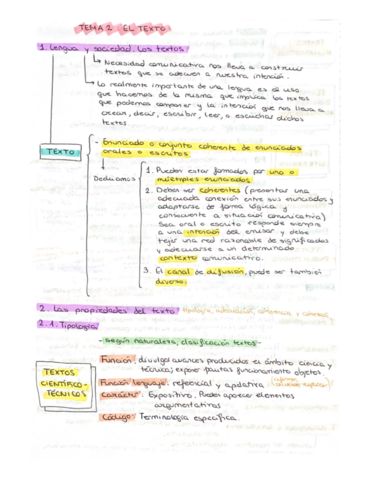 TEMA 2 EL TEXTO
1. Lengua y sociedad. Los textos.
Necesidad comunicativa nos lleva a construir
textos que se adecuen a nuestra intención.
Lo realmente importante de una lengua es el uso
que hacemos de la misma que implica los textos
que podemos componer y la intención que nos lleva a
crear, decir, escribir, leer, o escuchar dichos
textos
TEXTO
- Enunciado o conjunto coherente de enunciados
orales o escritos
Deducimos:
1. Pueden estar formados por uno o
múltiples enunciados.
2. Deben ser coherentes (presentar una
adecuada conexión entre sus enunciados y
adaptarse de forma lógica y
consecuente a situación comunicativa)
Sea oral o escrito responde siempre
a una intención del emisor y debe
tejer una red razonable de significados
y adecuarse a un determinado
contexto comunicativo.
3. El canal de difusión, puede ser también
diverso.
2. Las propiedades del texto: tipología, adecuación, coherencia y cohesión
2.1. Tipología:
- según naturaleza, clasificación textos-
TEXTOS
CIENTÍFICO-
TÉCNICOS
Función: divulgar avances producidos el ámbito ciencia y
técnica; exponer pautas funcionamiento objetos.
Función lenguaje: referencial y apelativa
Carácter: Expositivo. Puede aparecer elementos
argumentativos
Código: Terminología específica.